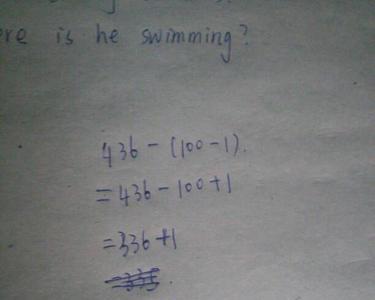 ere is he swimming?
436-(100-1).
=436-100+1
=336+1